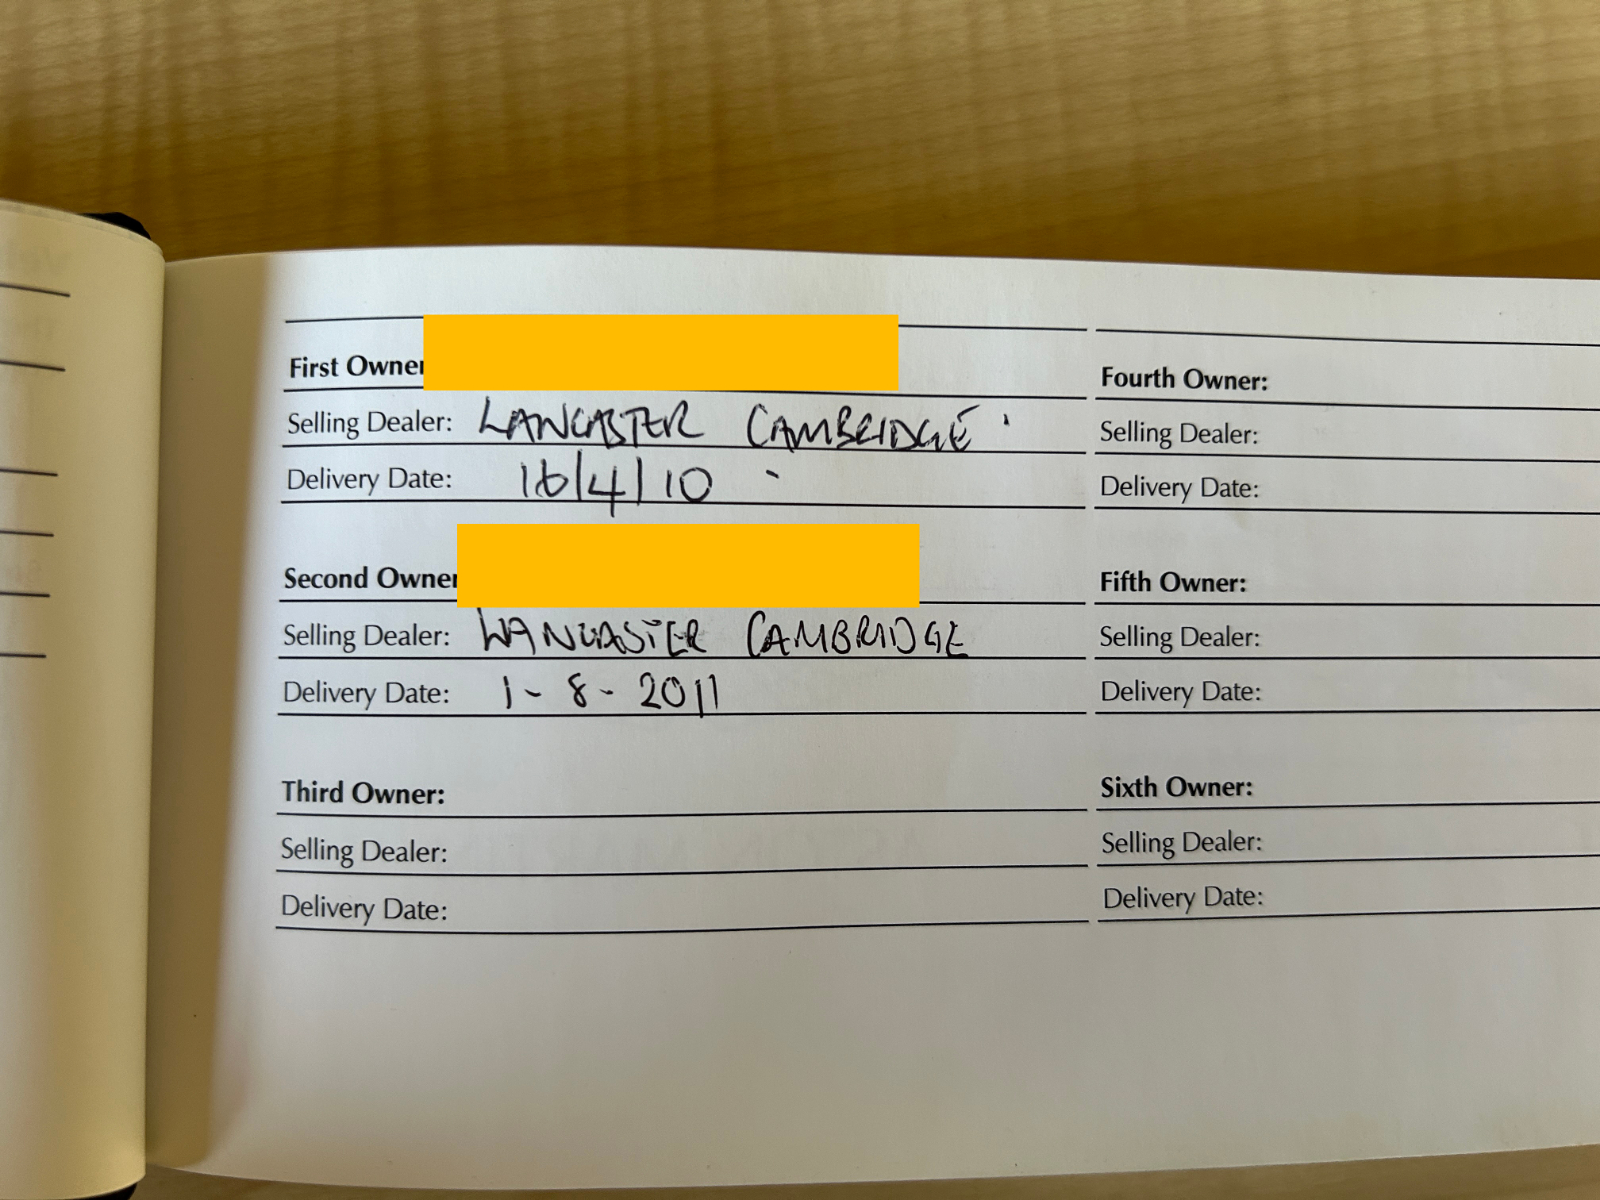 First Owner
Selling Dealer: LANCASTER CAMBRIDGE
Delivery Date: 16/4/10
Second Owner
Selling Dealer: LANCASTER CAMBRIDGE
Delivery Date: 1-8-2011
Third Owner:
Selling Dealer:
Delivery Date:
Fourth Owner:
Selling Dealer:
Delivery Date:
Fifth Owner:
Selling Dealer:
Delivery Date:
Sixth Owner:
Selling Dealer:
Delivery Date: